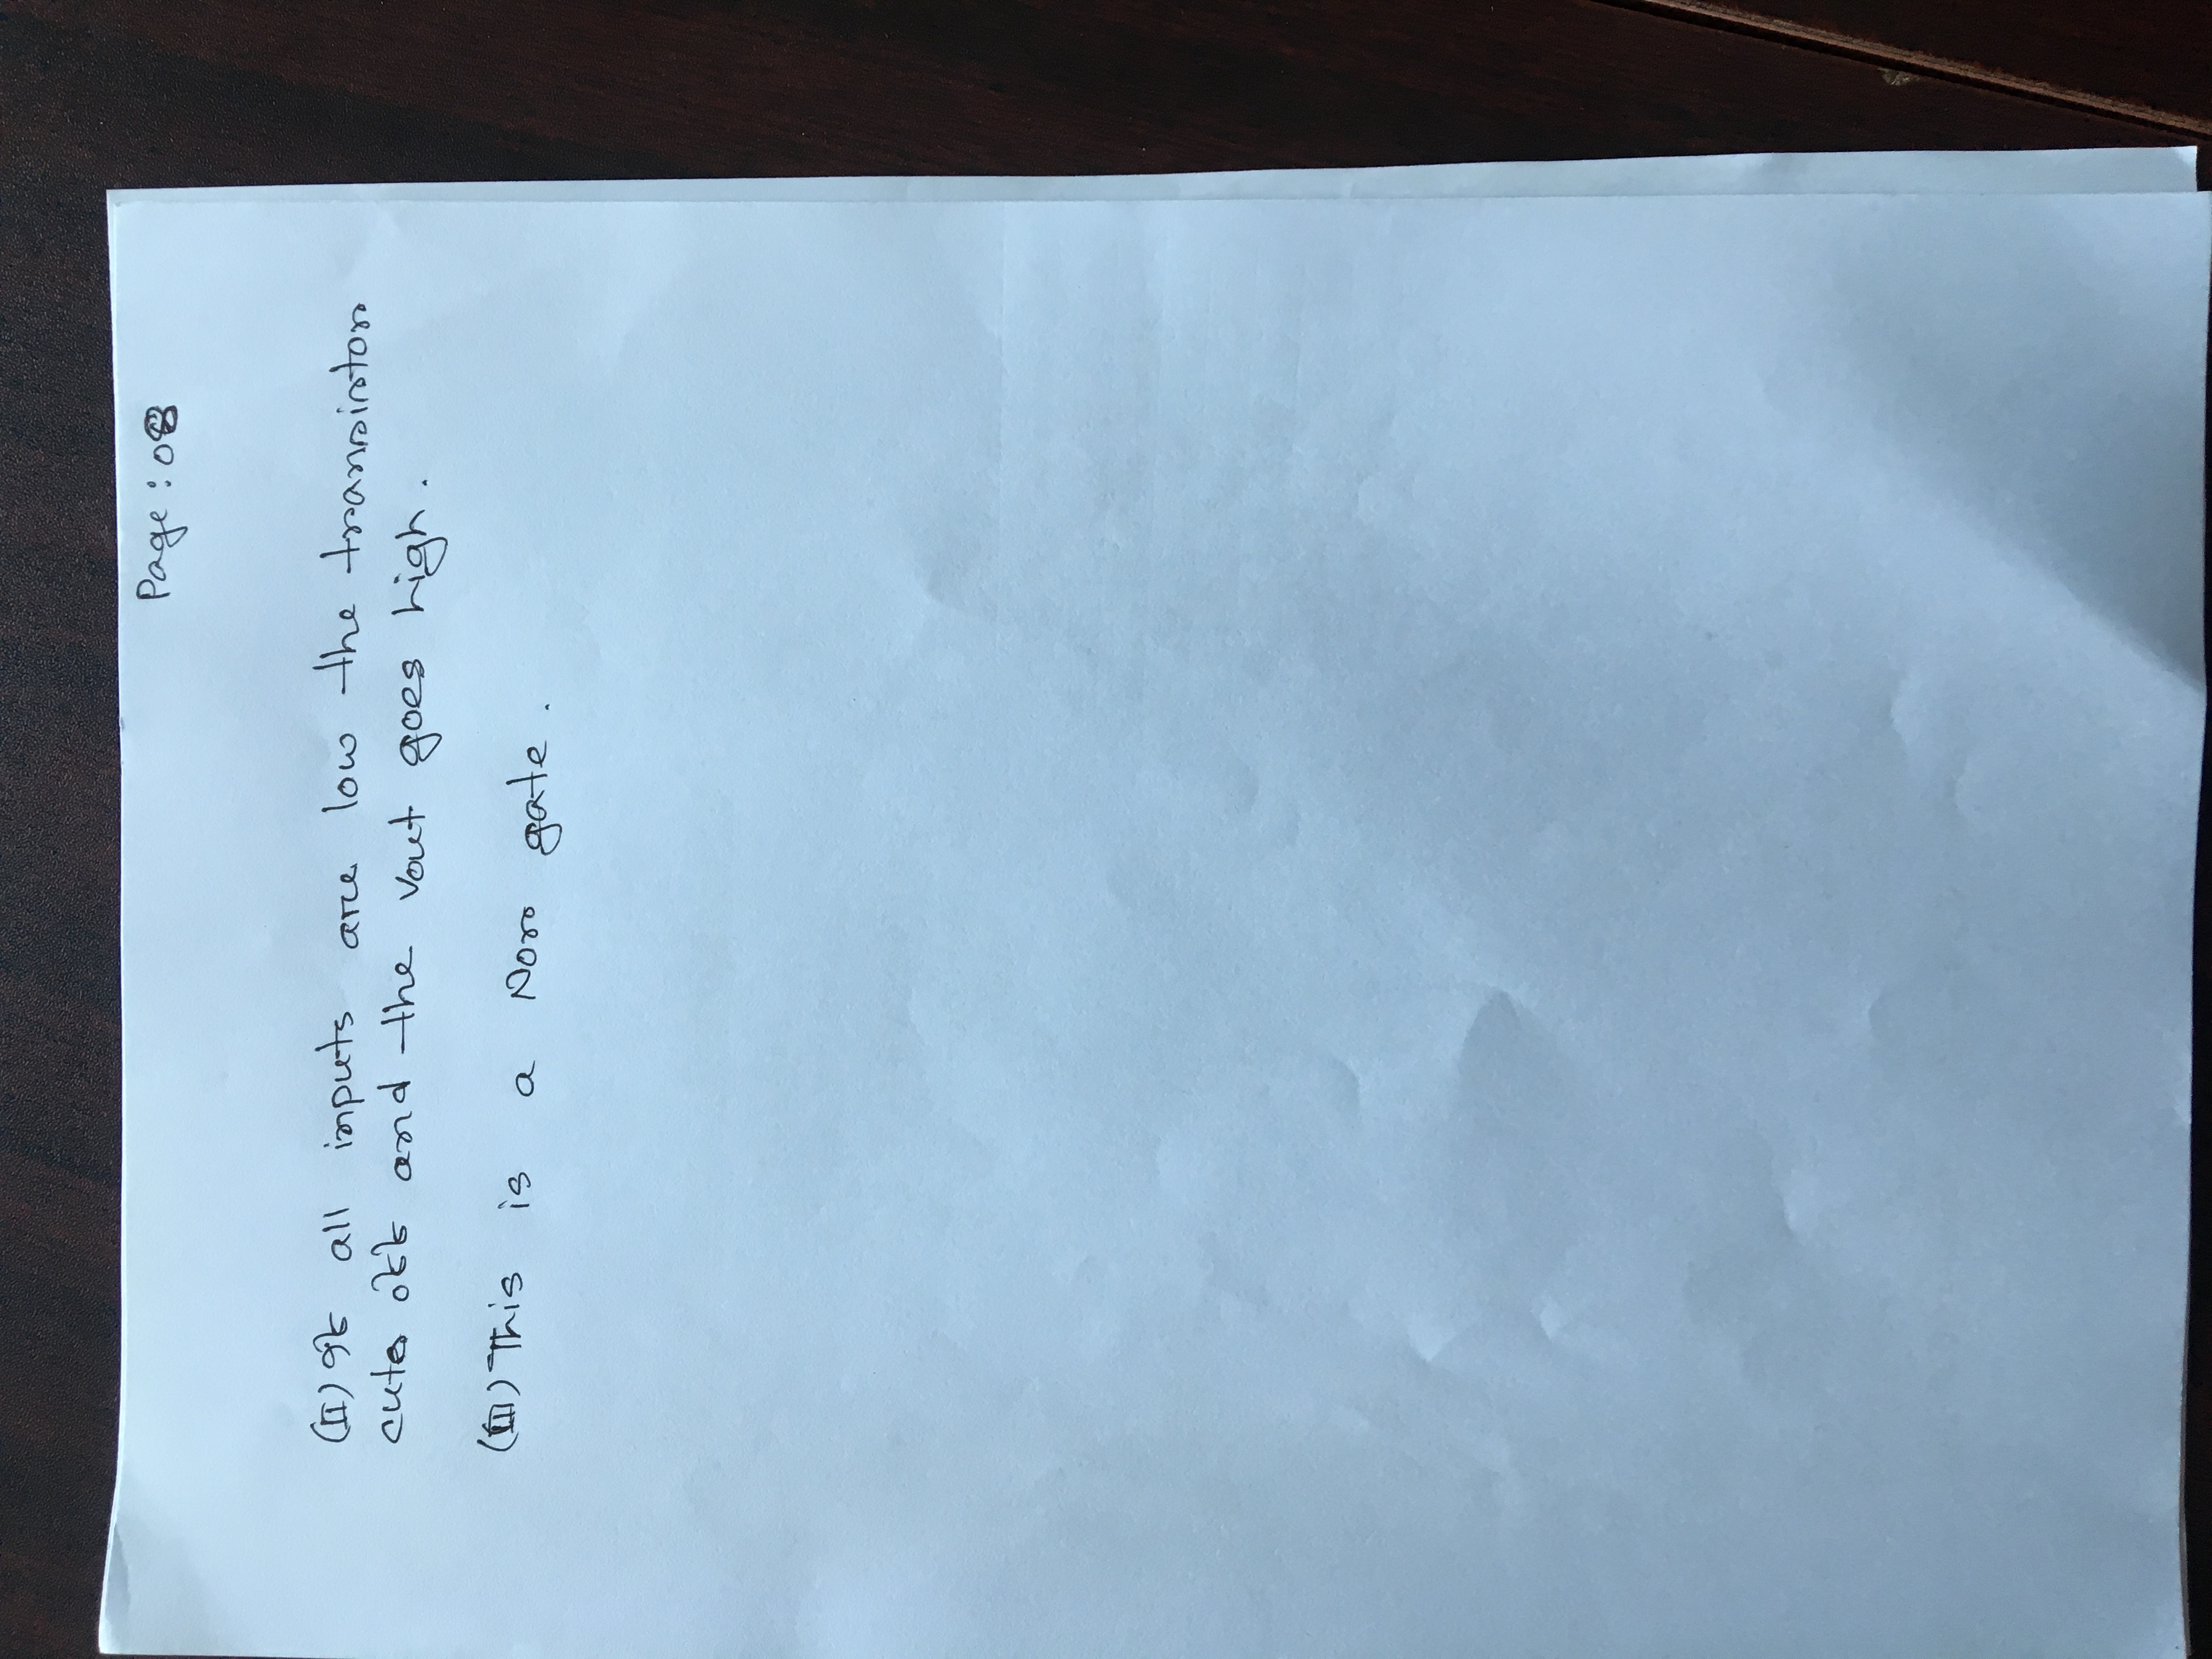 Page : 08
(II) If all inputs are low the transistor
cuts off and the Vout goes high.
(III) This is a Nor gate.